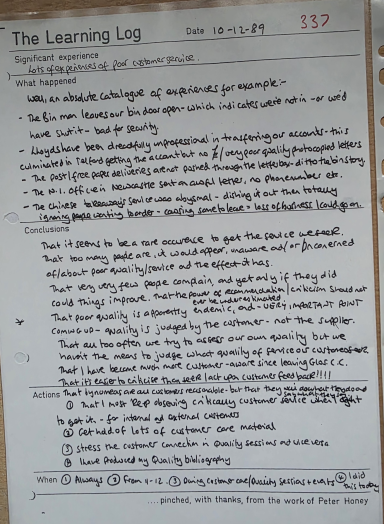 337
The Learning Log Date 10-12-89
Significant experience
Lots of experiences of poor customer service.
What happened
Well, an absolute catalogue of experiences for example:-
- The Bin man leaves our bin door open - which indicates we're not in - or we'd
have shut it - bad for security.
- Lloyds have been dreadfully unprofessional in transferring our accounts - this
culminated in Telford getting the account but no /very poor quality photocopied letters
- The post/free paper deliveries are not pushed through the letterbox - ditto the bin story.
- The N.I. office in Newcastle sent an awful letter, no phone number etc.
- The Chinese takeaways service was abysmal - dishing it out then totally
ignoring people wanting to order - causing some to leave = loss of business I could go on.
Conclusions
That it seems to be a rare occurence to get the service we seek.
That too many people are, it would appear, unaware and/or unconcerned
of/about poor quality/service and the effect it has.
That very very few people complain, and yet only if they did
could things improve. That the power of recommendation/criticism should not
ever be underestimated
That poor quality is apparently endemic, and - VERY IMPORTANT POINT
* coming up - quality is judged by the customer - not the supplier.
That all too often we try to assess our own quality but we
haven't the means to judge what quality of service our customers
That I have become much more customer-aware since leaving Glos C.C.
That it's easier to criticise than seek/act upon customer feedback!!!!
Actions That bynumbers are our customers reasonable - but that they
① That I must keep observing critically customer service when I
to get it. - for internal and external customers
② Get hold of lots of customer care material
③ stress the customer connection in Quality sessions and vice versa
④ I have produced my Quality bibliography
When ① Always ② From 4-12. ③ During customer care/Quality sessions + events ④ I did
this today
....pinched, with thanks, from the work of Peter Honey